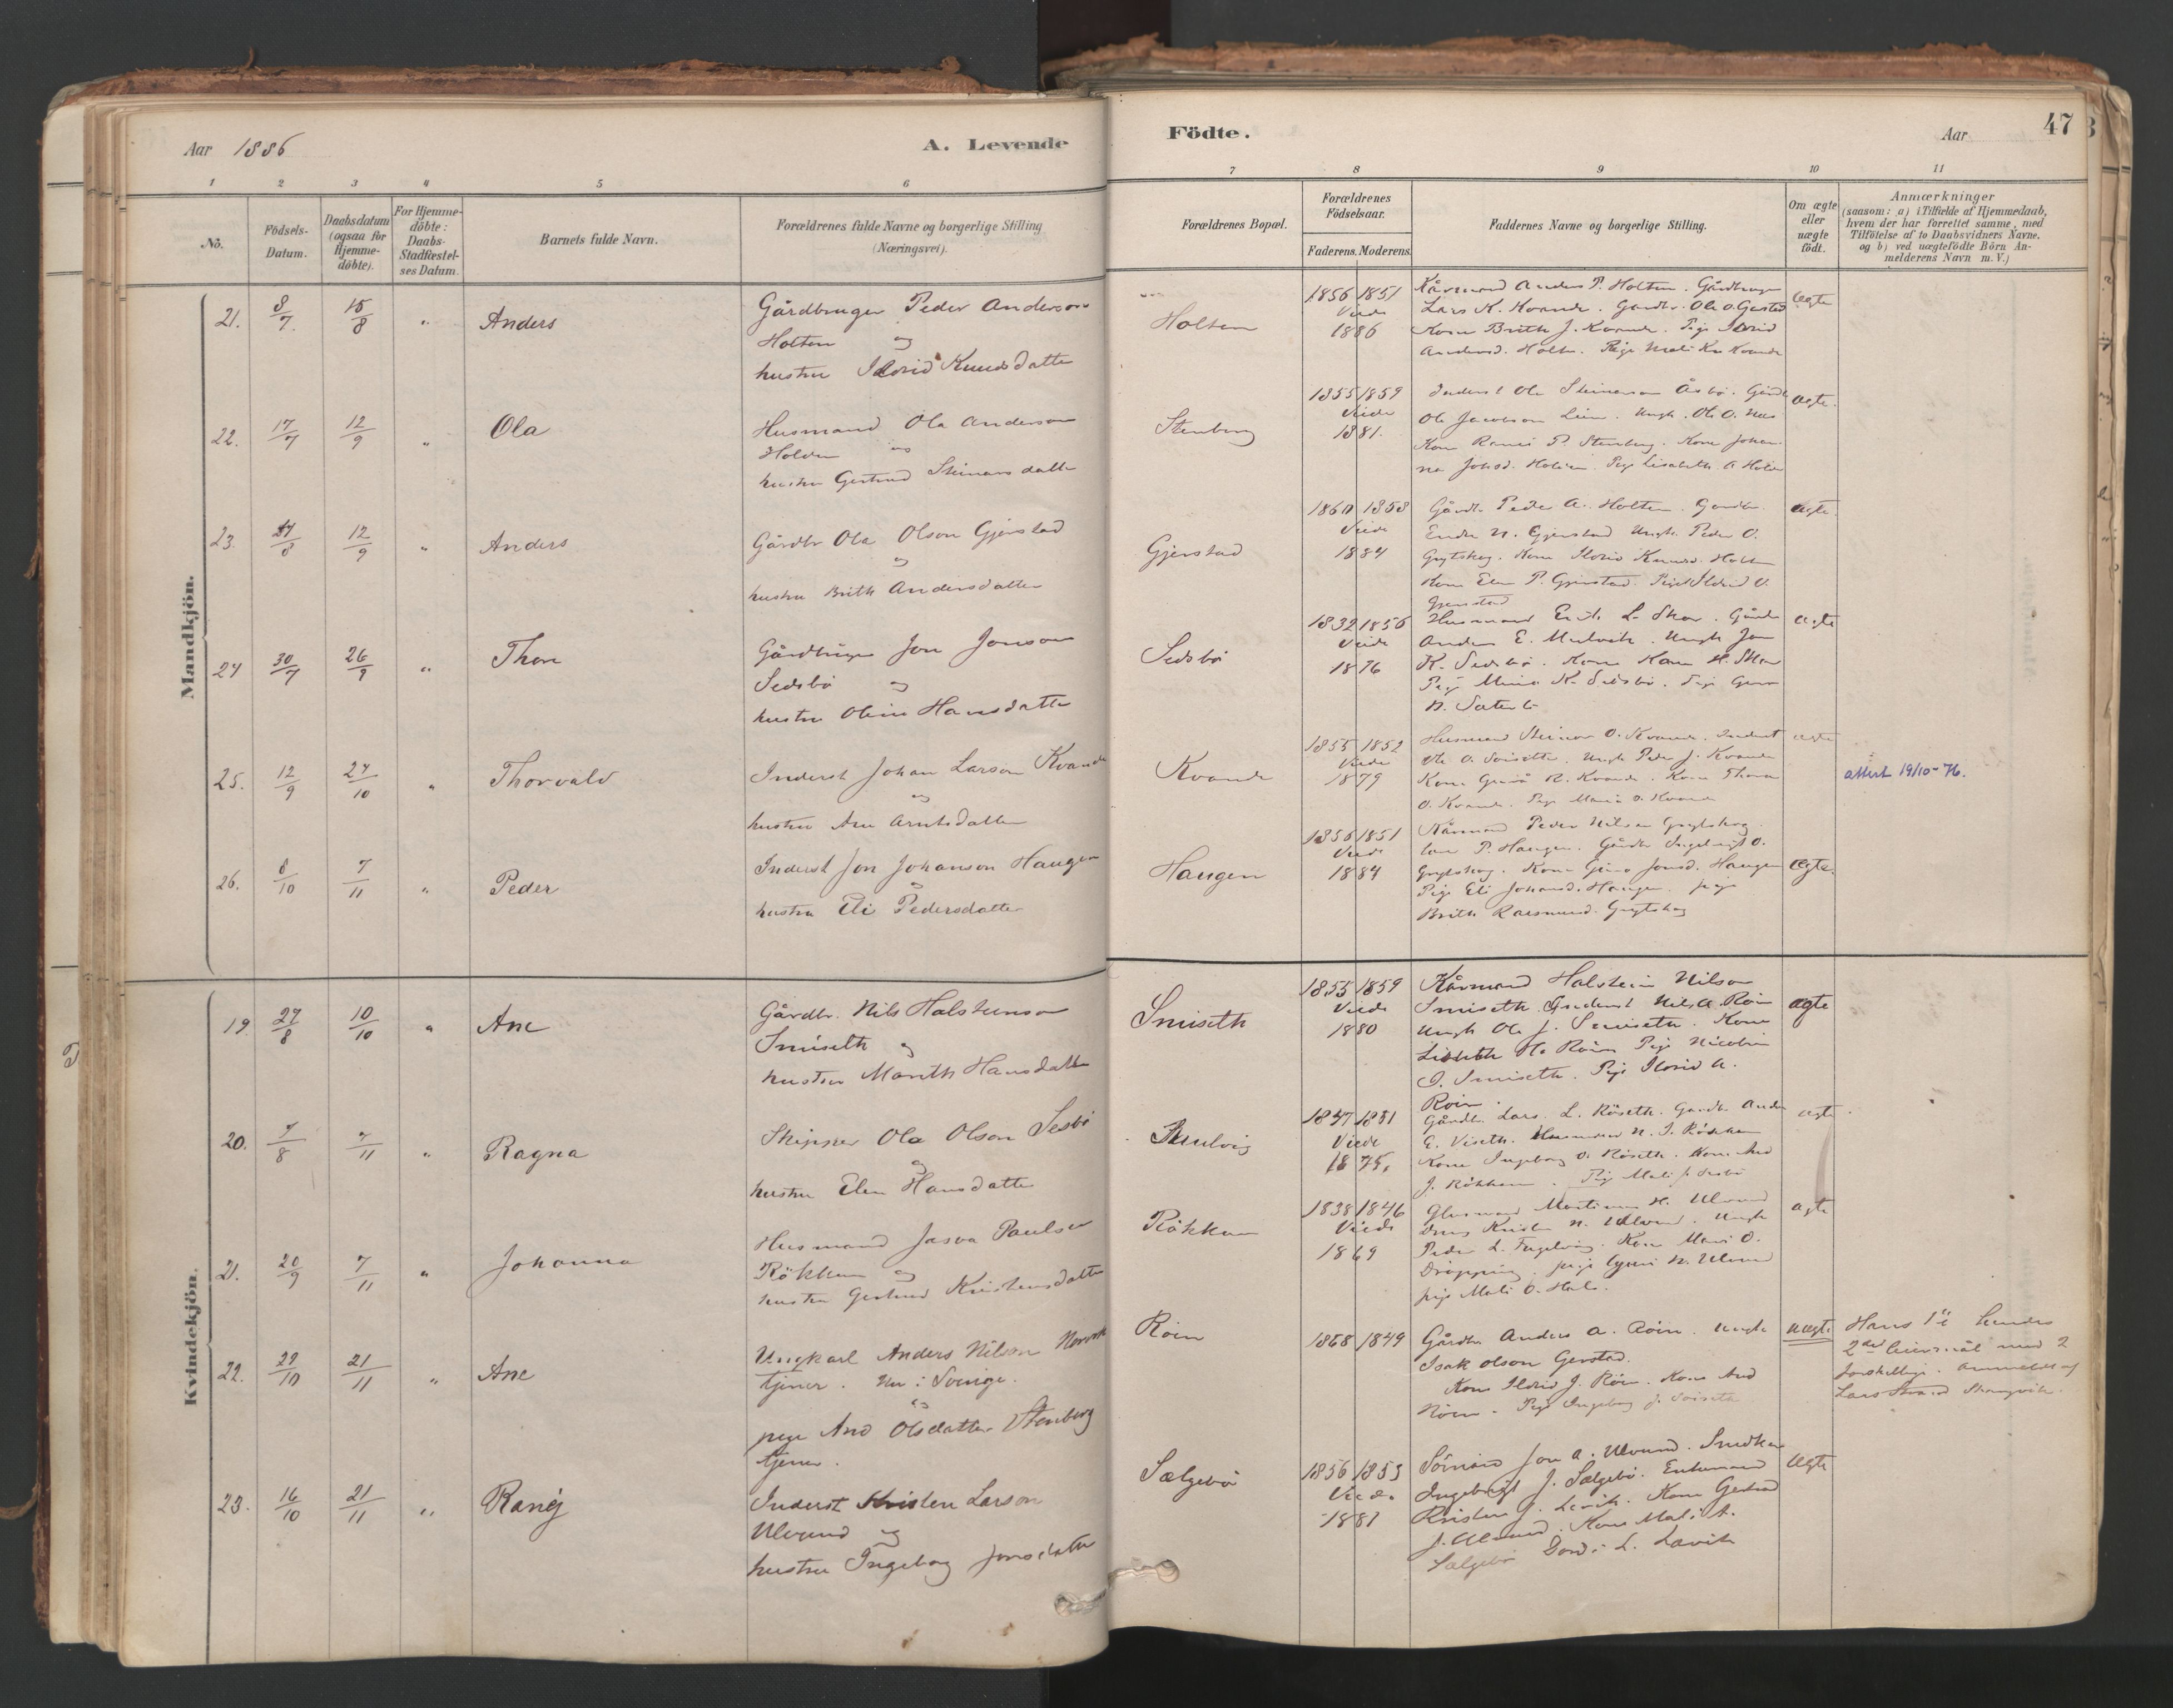 Aar 1886
A. Levende
Födte.
Aar
47
1 2 3 4 5 6 7 8 9 10 11
No.
Födsels-
Datum.
Daabsdatum
(ogsaa for
Hjemme-
döbte).
For Hjemme-
döbte:
Daabs-
Stadfæstel-
ses Datum.
Barnets fulde Navn.
Forældrenes fulde Navne og borgerlige Stilling
(Næringsvei).
Forældrenes Bopæl.
Forældrenes
Födselsaar.
Faderens. Moderens.
Faddernes Navne og borgerlige Stilling.
Om ægte
eller
uægte
födt.
Anmærkninger
(saasom: a) i Tilfælde af Hjemmedaab,
hvem der har forrettet samme, med
Tilföielse af to Daabsvidners Navne.
og b) ved uægtefödte Börn An-
melderens Navn m. V.)
Mandkjön.
21. 8/7 15/8 " Anders
Gårdbruger Peder Anderson
Holten og
hustru Ildrid Knudsdatter
Holten
1856 1851
Viede
1886
Kårmand Anders P. Holten. Gårdbruger
Lars K. Kvande. Gardbr. Ole O. Gjersted
Kone Brith J. Kvande. Pige Ildrid
Andersd. Holten. Pige Mali Kn Kvande
ægte
22. 17/7 12/9 " Ola
Husmand Ola Anderson
Holden og
hustru Gertrud Steinarsdatter
Stenberg
1855 1859
Viede
1881.
Inderst Ole Steinerson Åsbö. Gårdb
Ole Jacobson Lien. Ungk. Ole O. Næs
Kone Ranei P. Stenberg. Kone Johan-
na Johsd. Holden. Pige Lisabeth A Holen
ægte.
23. 17/8 12/9 " Anders
Gårdbr Ola Olson Gjerstad
og
hustru Brith Andersdatter
Gjerstad
1860 1858
Viede
1884
Gårdb. Peder A. Holten. Gardbr.
Endre N. Gjerstad Ungk. Peder O.
Grytskog. Kone Ildrid Knudsd. Holten
Kone Elen P. Gjerstad. Pige Ildrid O.
Gjerstad
ægte.
24 30/7 26/9 " Thore
Gårdbruger Jon Jonson
Sedsbö og
hustru Oline Hansdatter
Sedsbö
1832 1856
Viede
1876
Husmand Erik L. Skar. Gårdb
Anders E. Mulvik. Ungk Jon
K. Sedsbö. Kone Kari H. Skar
Pige Maria K. Sedsbö. Pige
ægte
25. 12/9 24/10 " Thorvald
Inderst Johan Larson Kvande
og
hustru Ane Arntsdatter
Kvande
1855 1852
Viede
1879
Husmand Steinar O. Kvande. Inderst
Ole O. Ungk Peder J. Kvande
Kone Guro R. Kvande. Kone Thora
O. Kvande. Pige Maria O. Kvande
ægte
attest 19/10-76.
26. 8/10 7/11 " Peder
Inderst Jon Johanson Haugen
og
hustru Eli Pedersdatter
Haugen
1856 1851
Viede
1884
Kårmand Peder Nilsen Grytskog
P. Haugen. Gårdbr Ingebrigt O.
Grytskog. Kone Guro Jonsd. Haugen
Pige Eli Johansd. Haugen. pige
Brith Rasmusd. Grytskog
ægte.
Kvindekjön.
19 27/8 10/10 " Ane
Gårdbr. Nils Halsteinson
Smiseth og
hustru Marith Hansdatter
Smiseth
1855 1859
Viede
1880
Kårmand Halstein Nilson
Smiseth. Inderst Nils A. Röen
Ungk Ole J. Smiseth. Kone
Lisbeth H. Röen Pige Nicoline
J. Smiseth. Pige Ildrid A.
Röen.
ægte
20. 7/8 7/11 " Ragna
Skipper Ola Olson Sesbö
og
hustru Elen Hansdatter
Smulvig
1847 1851
Viede
1875.
Gårdbr. Lars L. Röseth. Gardb. Anders
E. Viseth. Husmand N. J. Röckken
Kone Ingeborg O. Röseth. Kone And
J. Rökkum. Pige Mali J. Sesbö
ægte.
21. 20/9 7/11 " Johanna
Husmand Paulsen
Rökkum og
hustru Gertrud Kristensdatter
Rökkum
1838 1846
Viede
1869
Husmand Mortinus H. Ulvund
Dreng Kristen N. Ulvund. Ungk
Peder L. Fugelvåg. Kone Mari O.
Dröpping. pige N. Ulvund
pige Mali O. Hals.
ægte
22. 29/10 21/11 " Ane
Ungkarl Anders Nilson
tjener. Nu i Sverige.
og
pige And Olsdatter Stenberg
tjener.
Röen
1868 1849
Gårdbr. Anders A. Röen. Ungk
Isak Olson Gjerstad.
Kone Ildrid J. Röen. Kone And
Röen. Pige Ingeborg J.
uægte
Hans 1ste hendes
2det leiermål med 2
forskjellige. Anmeldt af
Lars Strand Stangvik.
23. 16/10 21/11 " Ranej
Inderst Kristen Larson
Ulvund og
hustru Ingeborg Jonsdatter
Sælgebö
1856 1853
Viede.
1881
Sömand Jon A. Ulvund. Snedker
Ingebrigt J. Sælgebö. Enkemand
Kristen J. Levik. Kone Gertrud
J. Ulvund. Kone Mali A.
Sælgebö Dordi L. Lævik
ægte